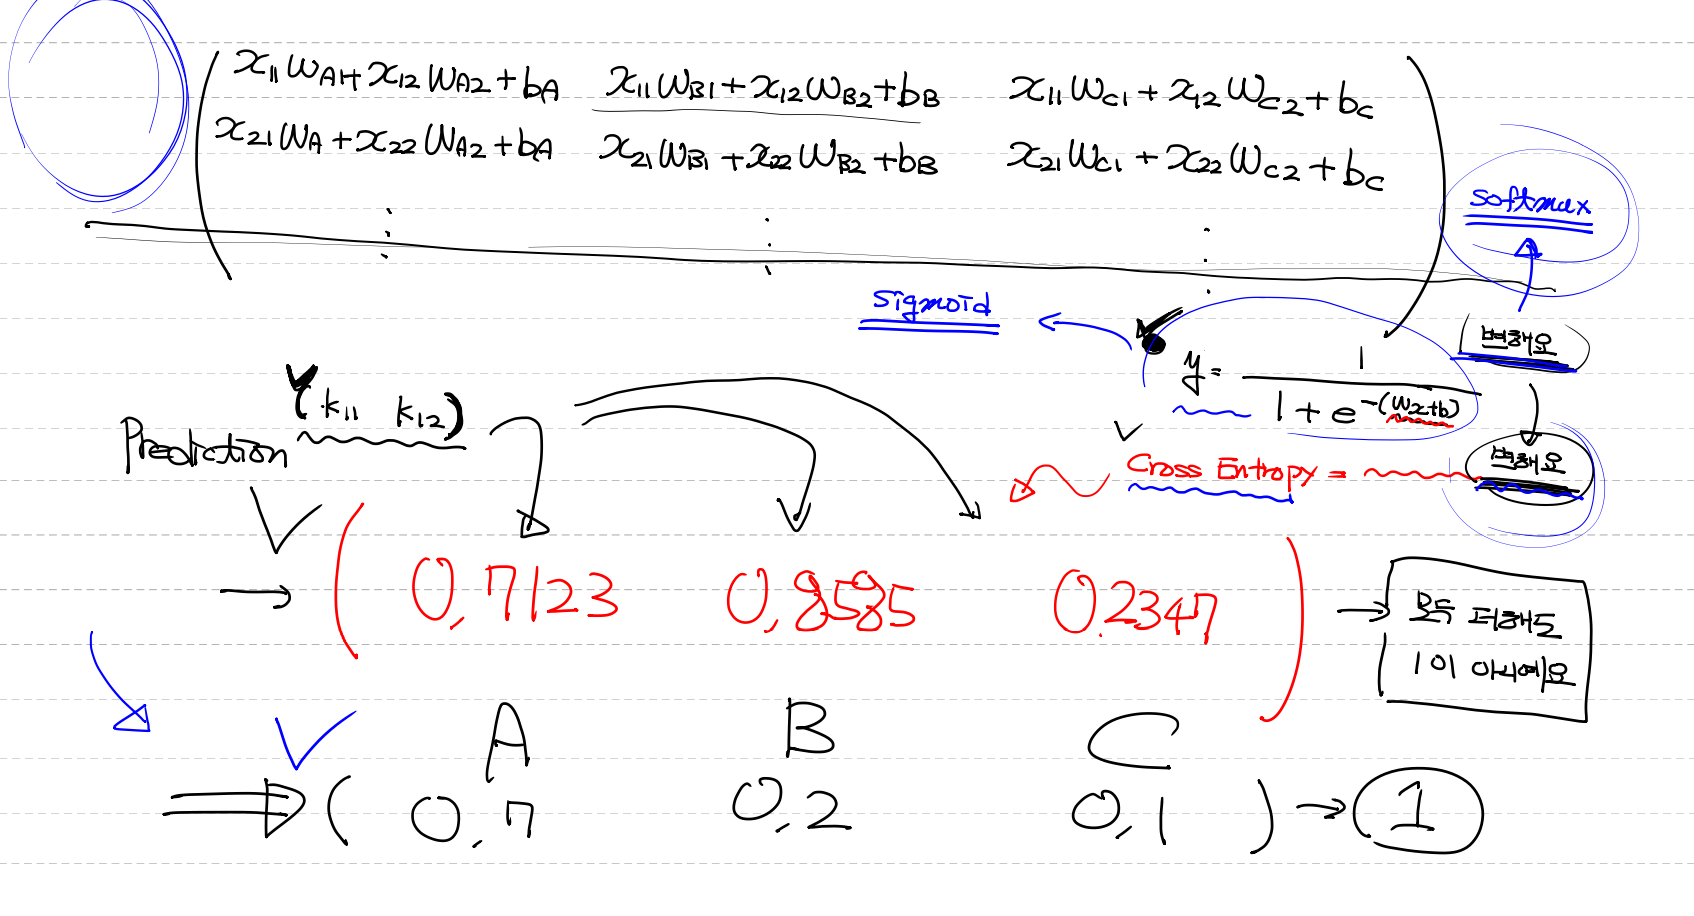 x11 WA1 + x12 WA2 + bA x11 WB1 + x12 WB2 + bB x11 WC1 + x12 WC2 + bC
x21 WA + x22 WA2 + bA x21 WB1 + x22 WB2 + bB x21 WC1 + x22 WC2 + bC
⋮ ⋮ ⋮
softmax
sigmoid
변해요
y = 1 / (1 + e^-(Wx+b))
Prediction (k11 k12)
Cross Entropy =
변해요
→ ( 0.7123 0.8585 0.2347 ) →
모두 더해도
1이 아니예요
A B C
⇒ ( 0.7 0.2 0.1 ) → 1